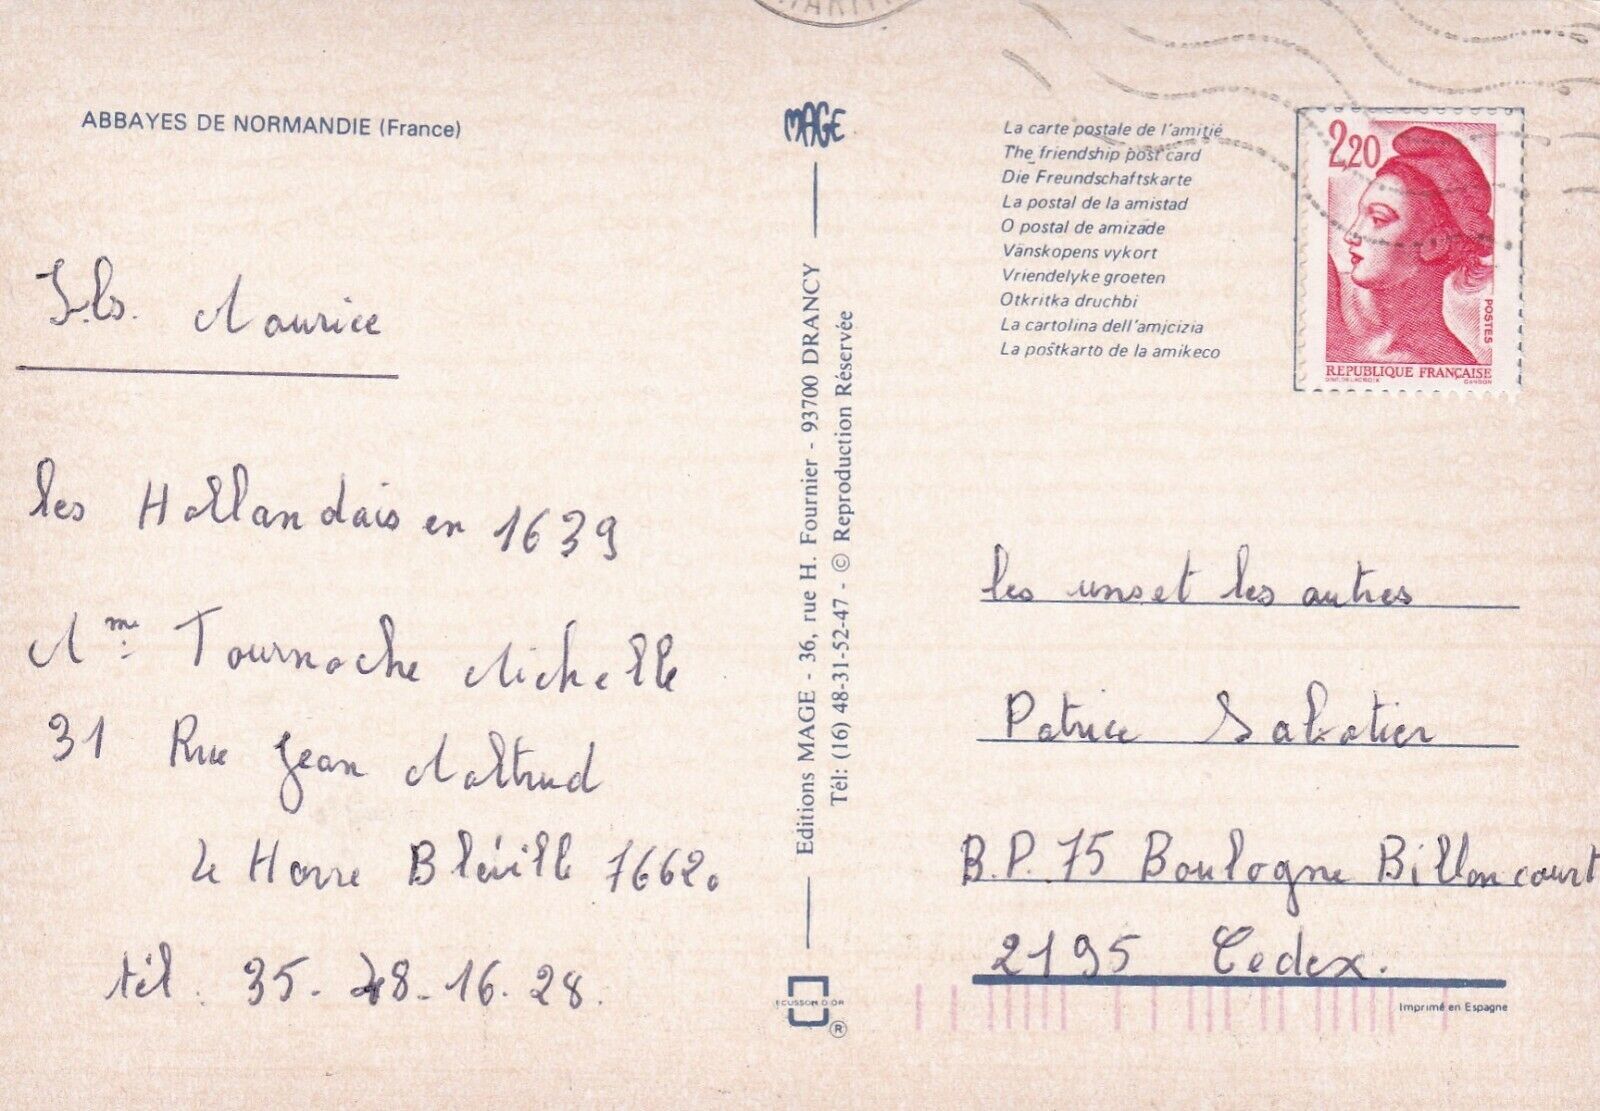 ABBAYES DE NORMANDIE (France)
Maurice
les Hollandais en 1639
Mme Tournache Michelle
31 Rue Jean Maltrud
Le Havre Bléville 76620
tél. 35-48-16-28.
MAGE
Editions MAGE - 36, rue H. Fournier - 93700 DRANCY
Tél: (16) 48-31-52-47 - © Reproduction Réservée
ECUSSON D'OR
®
La carte postale de l'amitié
The friendship post card
Die Freundschaftskarte
La postal de la amistad
O postal de amizade
Vänskopens vykort
Vriendelyke groeten
Otkritka druchbi
La cartolina dell'amicizia
La poŝtkarto de la amikeco
2,20
POSTES
REPUBLIQUE FRANÇAISE
les uns et les autres
Patrice Sabatier
B.P. 75 Boulogne Billancourt
2195 Cedex.
Imprimé en Espagne